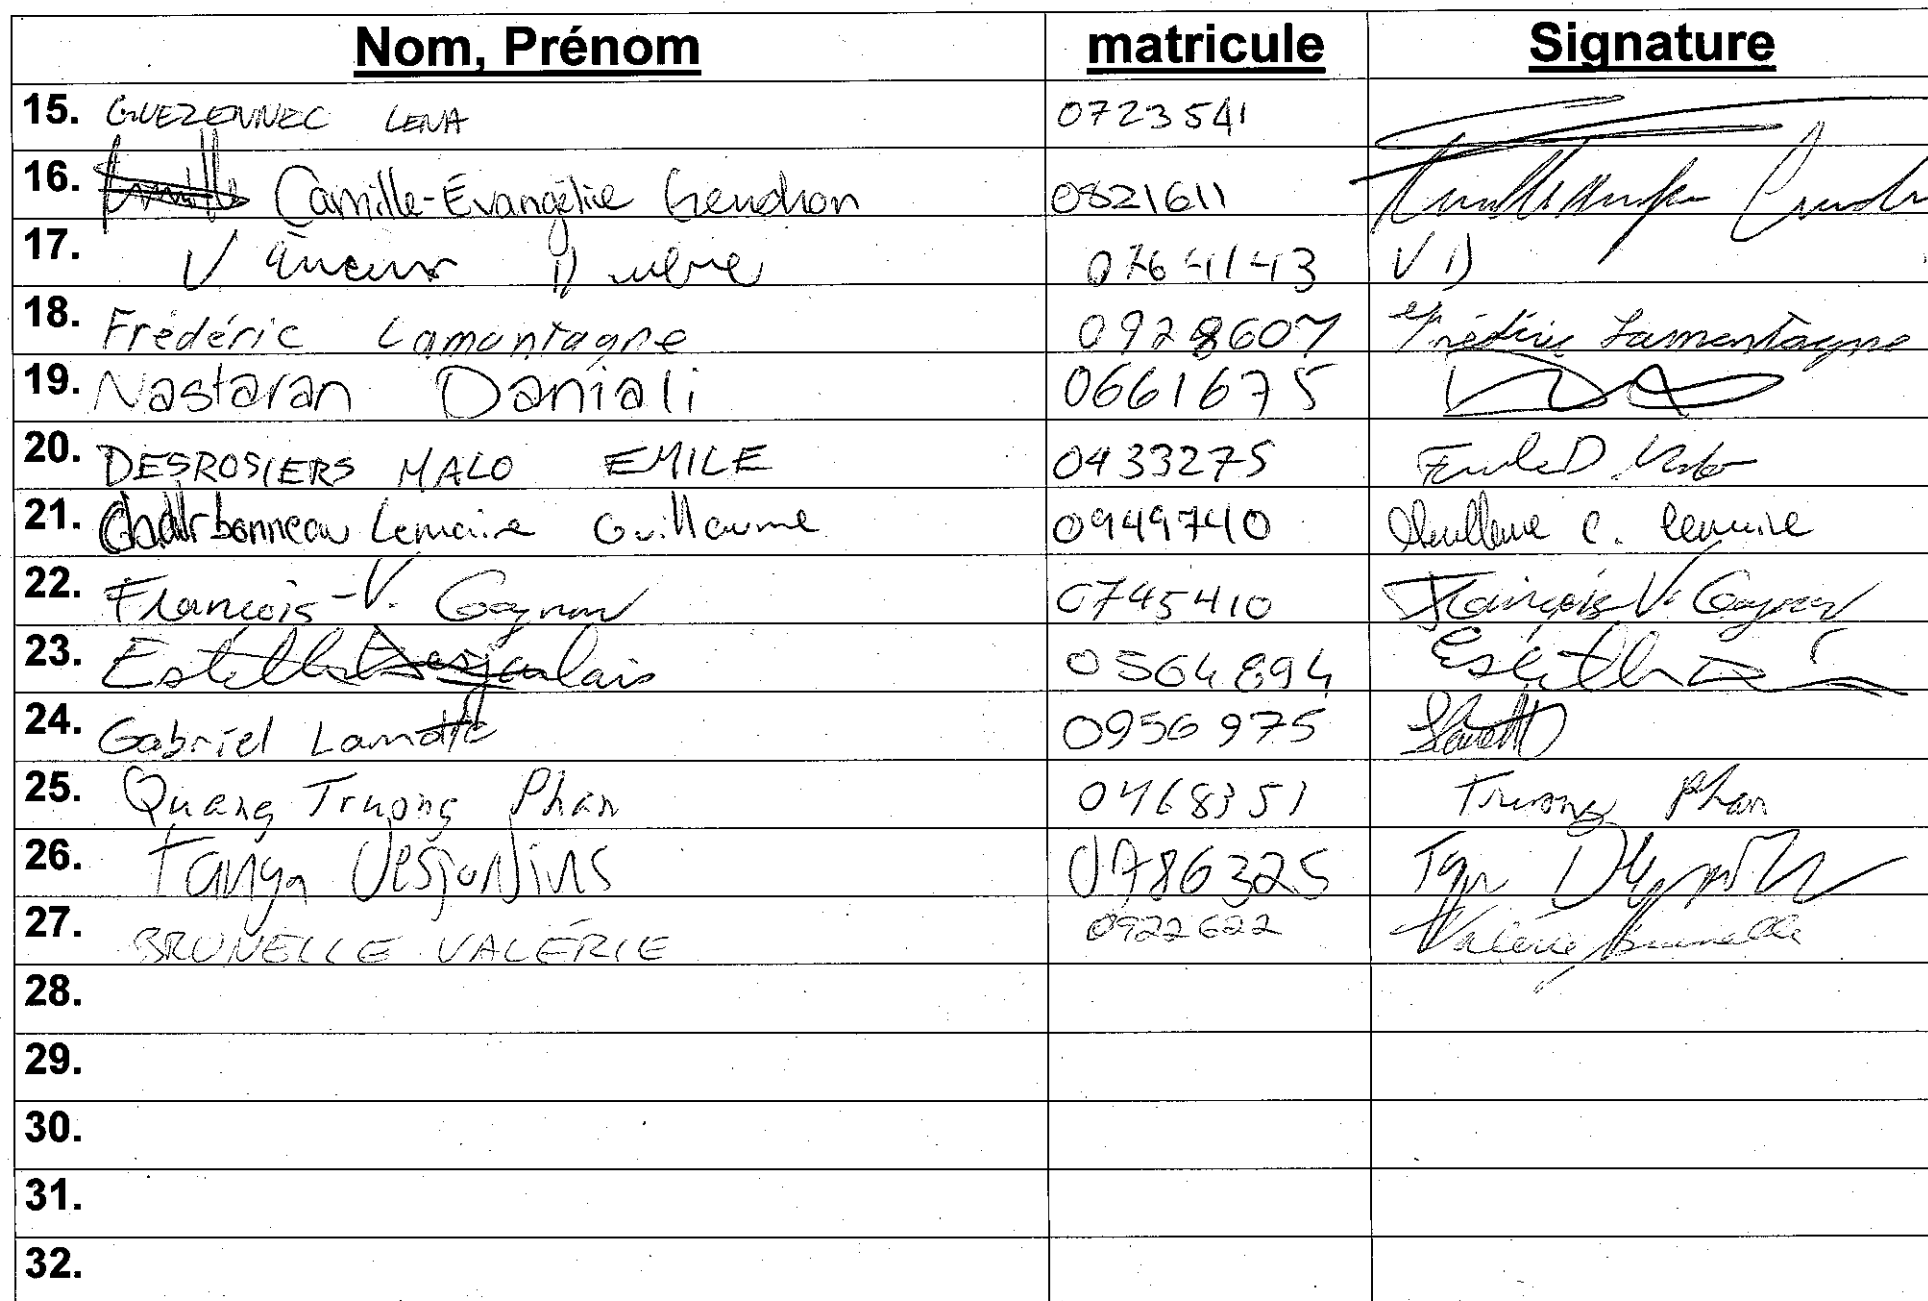 Nom, Prénom matricule Signature
15. GUEZENNEC LENA 0723541
16. Camille-Évangélie Gendron 0821611
17. 0764143 V D
18. Frédéric Lamontagne 0928607 Frédéric Lamontagne
19. Nastaran Daniali 0661675
20. DESROSIERS MALO EMILE 0433275 Emile D. Malo
21. Charbonneau Lemaire Guillaume 0949740 Guillaume C. Lemaire
22. Francois-V. Gagnon 0745410 François V. Gagnon
23. Estelle 0564894 Estelle
24. Gabriel Lamotte 0956975
25. Quang Truong Phan 0468351 Truong Phan
26. Tanya Desjardins 0786325
27. BRUNELLE VALÉRIE 0922622 Valérie Brunelle
28.
29.
30.
31.
32.